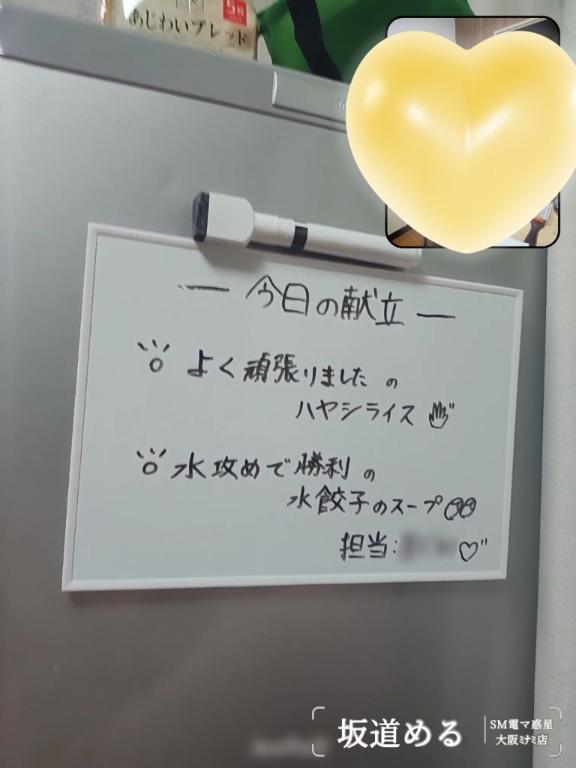 5枚
あじわいブレッド
― 今日の献立 ―
よく頑張りました の
ハヤシライス
水攻めで勝利 の
水餃子のスープ
担当:
坂道める
SM電マ惑星
大阪ミナミ店